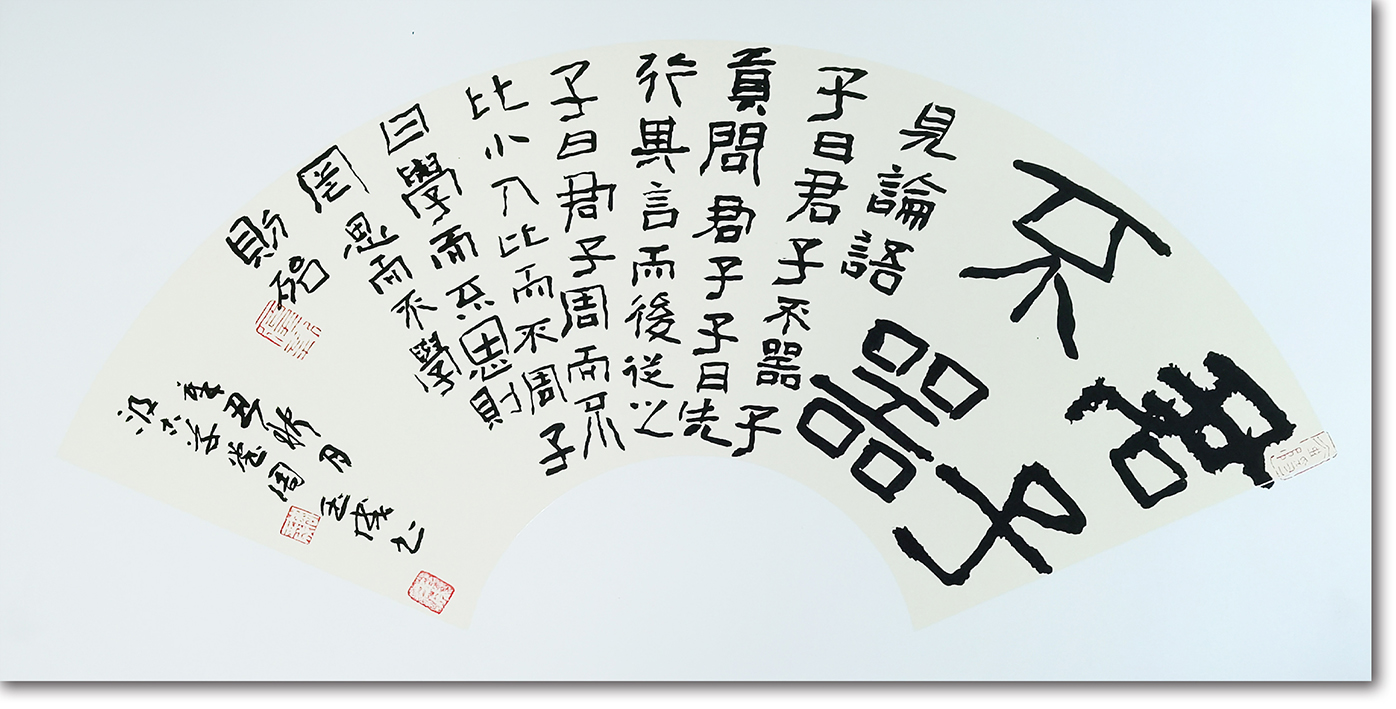 君子
不器
見論語
子曰君子不器子
貢問君子子曰先
行其言而後從之
子曰君子周而不
比小人比而不周子
曰學而不思則
罔思而不學
則殆
辛丑秋月玉峰书